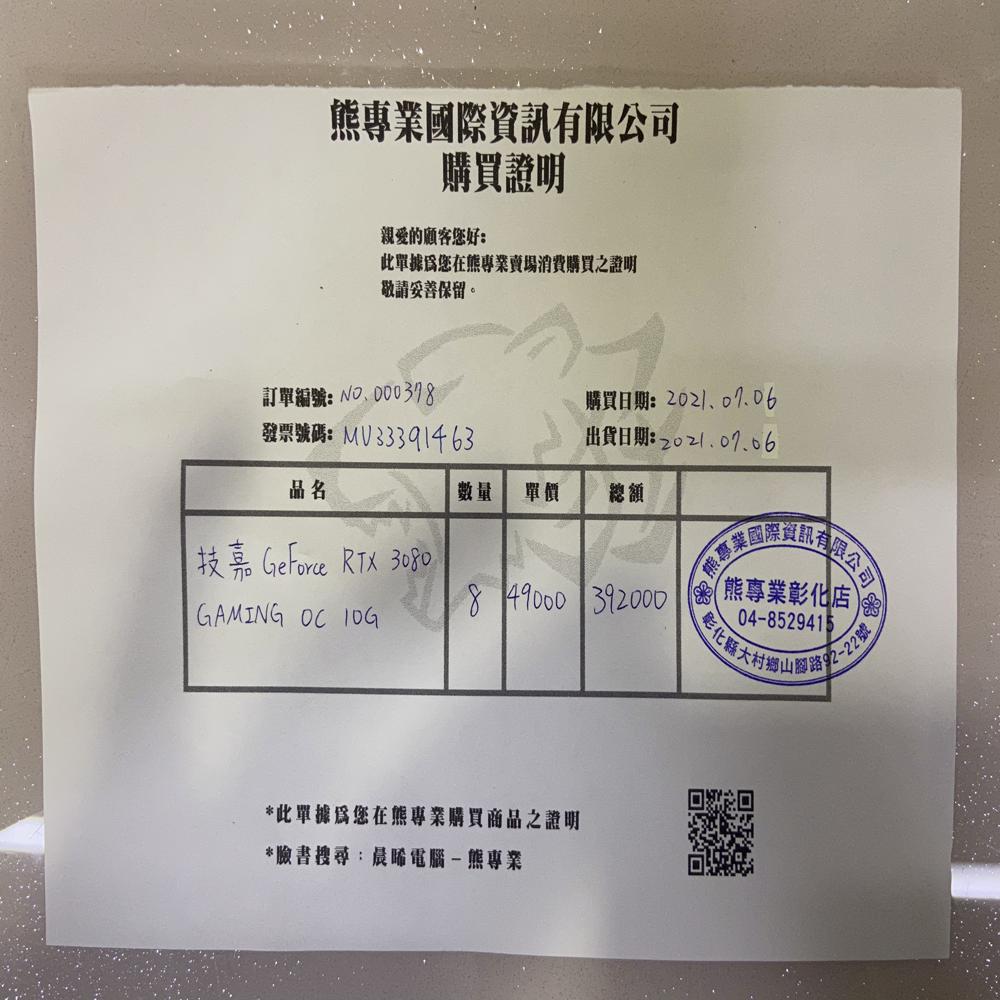 熊專業國際資訊有限公司
購買證明
親愛的顧客您好:
此單據為您在熊專業賣場消費購買之證明
敬請妥善保留。
訂單編號: NO.000378
購買日期: 2021.07.06
發票號碼: MV33391463
出貨日期: 2021.07.06
品名 數量 單價 總額
技嘉 GeForce RTX 3080
GAMING OC 10G
8 49000 392000
熊專業國際資訊有限公司
熊專業彰化店
04-8529415
彰化縣大村鄉山腳路92-22號
*此單據為您在熊專業購買商品之證明
*臉書搜尋：晨晞電腦-熊專業